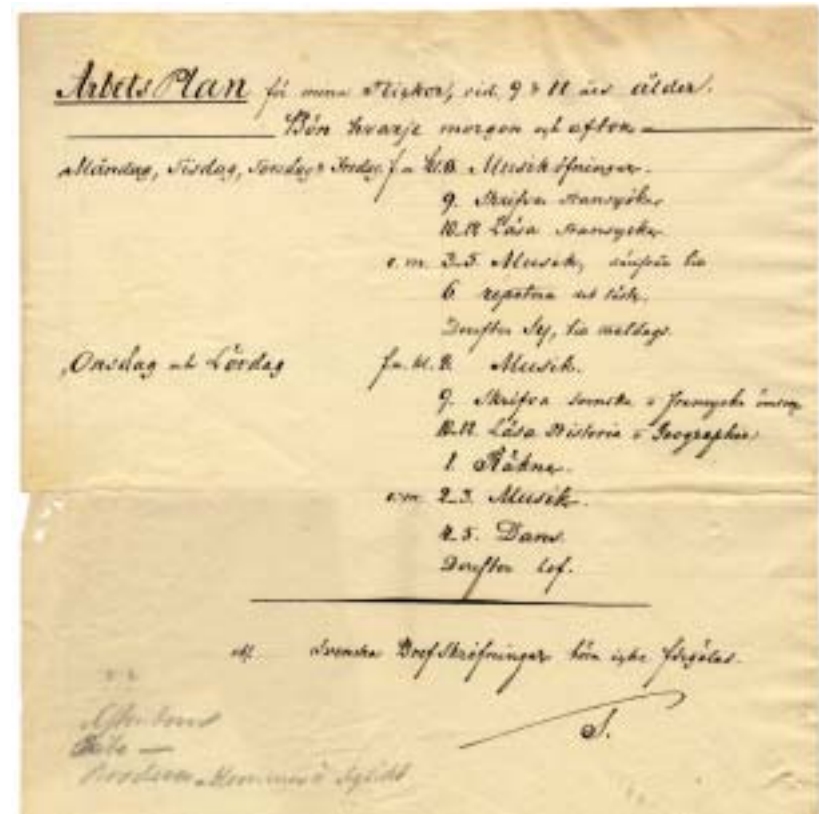 Arbets Plan för mina Flickor, vid 9 & 11 års ålder.
Bön hvarje morgon och afton
Måndag, Tisdag, Torsdag & Fredag f.m kl.8. Musiköfningar.
9. Skrifva Fransyska
10.12 Läsa Fransyska
e.m. 3-5. Musik,
6 repetera
Derefter
Onsdag och Lördag f.m. kl. 8. Musik.
9. Skrifva svenska o fransyska
10-12. Läsa Historia o Geographie
1. Räkna.
e.m. 2-3. Musik.
4-5. Dans.
Derefter lof.
Svenska Bref Skrifningar böra icke förgätas.
S.